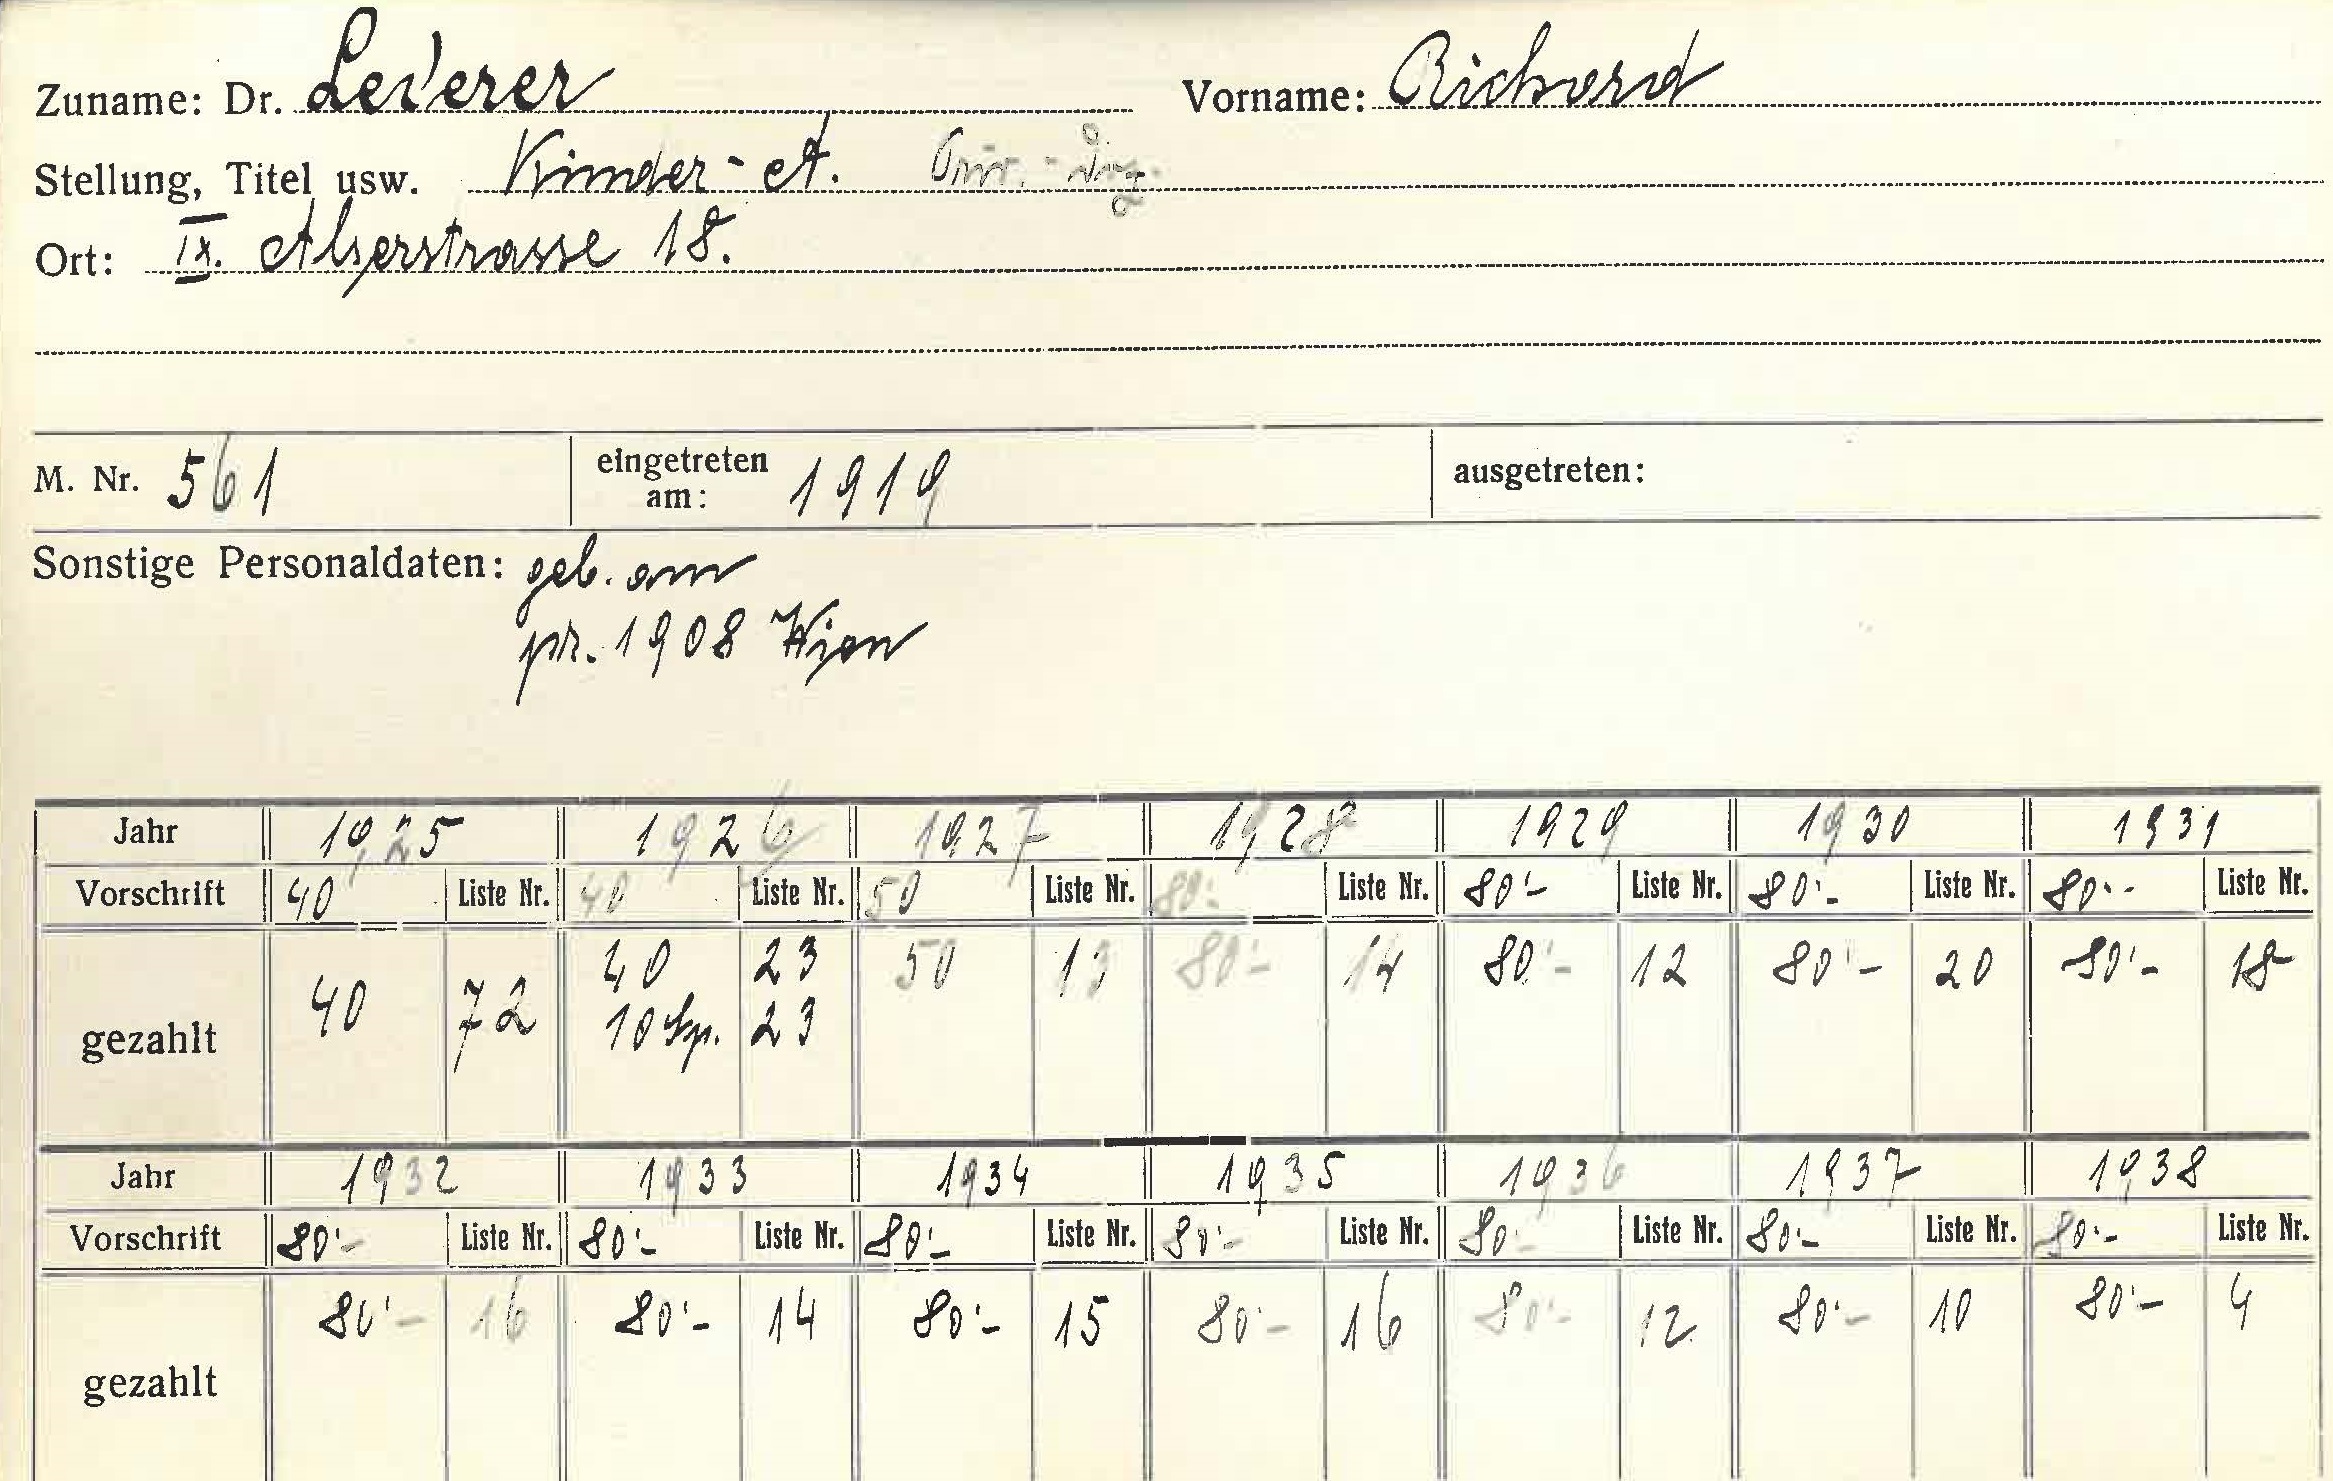 Zuname: Dr. Lederer Vorname: Richard
Stellung, Titel usw. Kinder-A. Priv.-Doz.
Ort: IX. Alserstrasse 18.
M. Nr. 561 eingetreten am: 1919 ausgetreten:
Sonstige Personaldaten: geb. am
pr. 1908 Wien
Jahr 1925 1926 1927 1928 1929 1930 1931
Vorschrift 40 Liste Nr. 40 Liste Nr. 50 Liste Nr. 80'- Liste Nr. 80'- Liste Nr. 80'- Liste Nr. 80'- Liste Nr.
gezahlt 40 72 40 23 50 13 80'- 14 80'- 12 80'- 20 80'- 18
10 Sp. 23
Jahr 1932 1933 1934 1935 1936 1937 1938
Vorschrift 80'- Liste Nr. 80'- Liste Nr. 80'- Liste Nr. 80'- Liste Nr. 80'- Liste Nr. 80'- Liste Nr. 80'- Liste Nr.
gezahlt 80'- 16 80'- 14 80'- 15 80'- 16 80'- 12 80'- 10 80'- 4